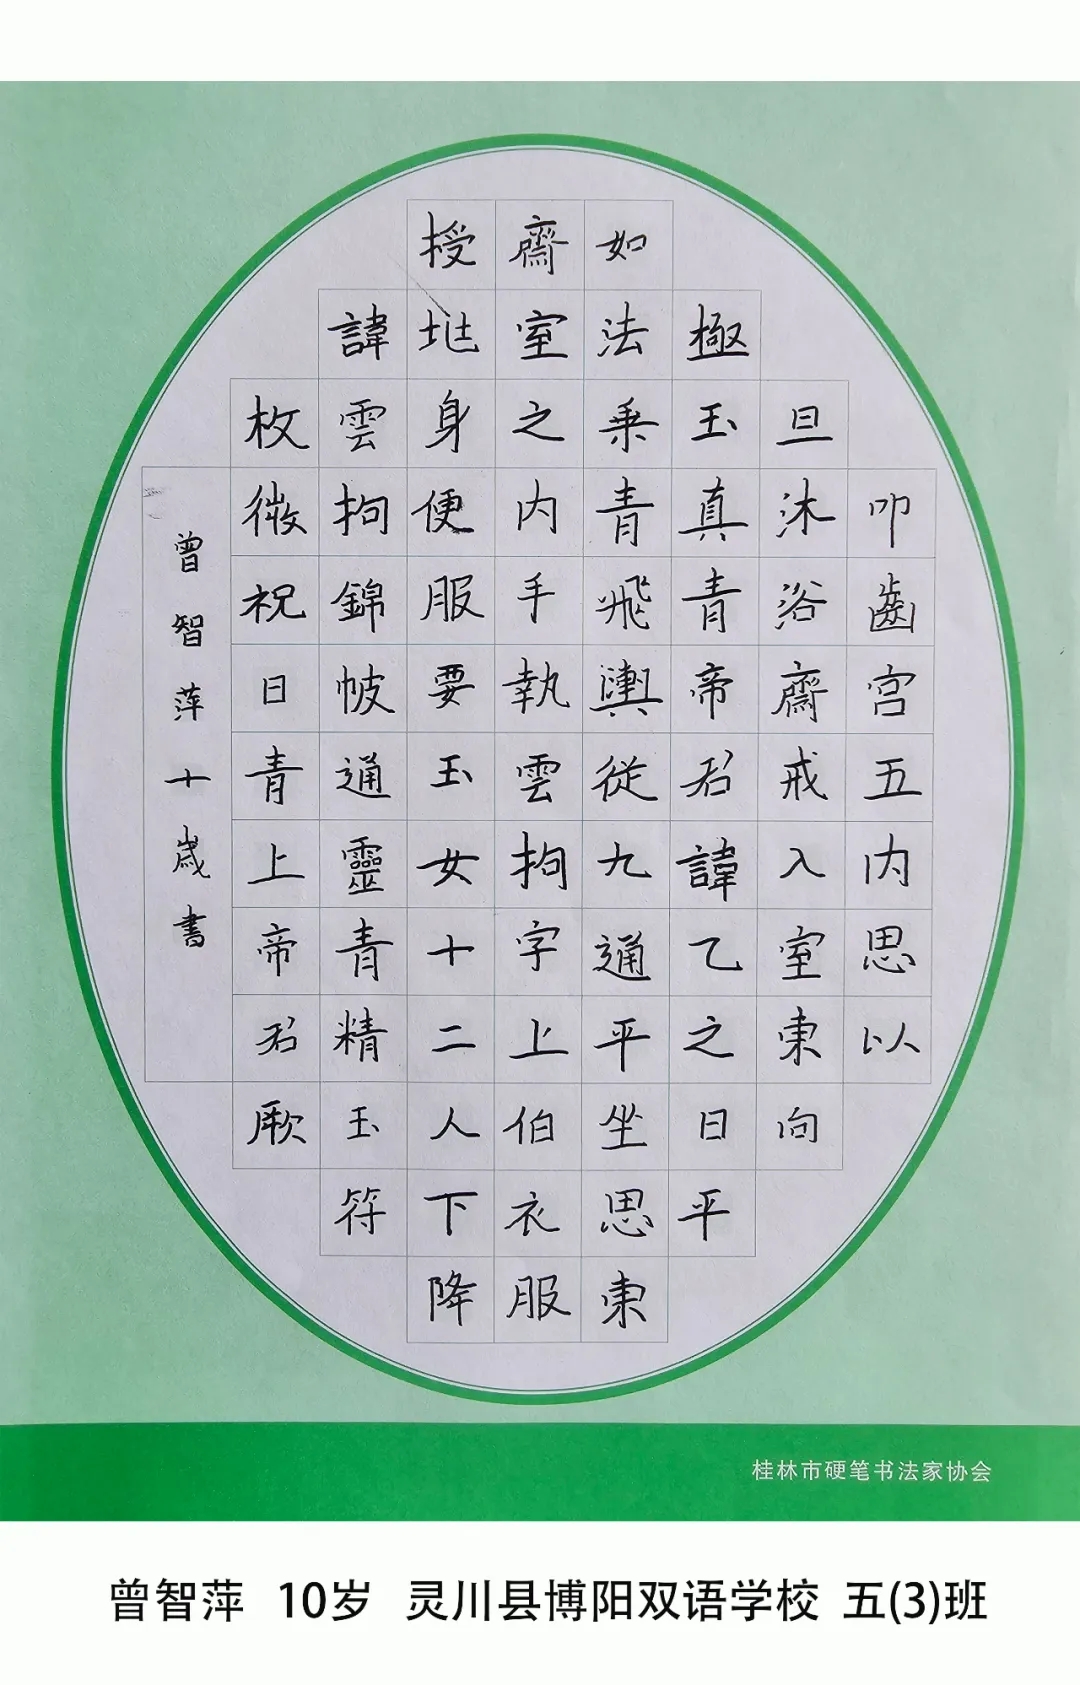 叩齒宫五内思以
旦沐浴齋戒入室東向
極玉真青帝君諱乙之日平
如法乗青飛輿從九通平坐思東
齋室之内手執雲拘字上伯衣服
授地身便服要玉女十二人下降
諱雲拘錦帔通靈青精玉符
枚微祝日青上帝君厥
曾智萍十歲書
桂林市硬笔书法家协会
曾智萍 10岁 灵川县博阳双语学校 五(3)班